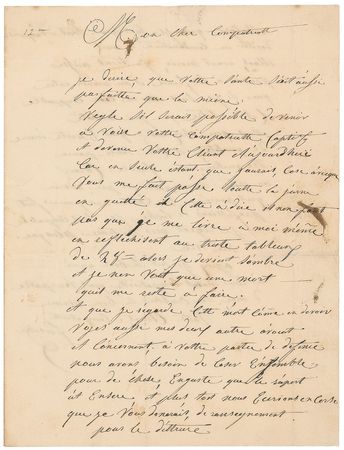 12
Mon cher Compatriotte
je desire que Vottre Sante Soit aussi
parfaitte que la mienne.
S'il serait possible de venir
a Voire Vottre Compatriotte Captif
et devenu Vottre Client Aujourdhui
Car en Seule instant que j'aurais, Cose avec
Vous me fait passer toutte la journe
en quiette Cette a dire et non fait
pas que je me livre à moi même
en reflechissent au triste tableau
de alors je devient Sombre
et je nen Voit que une mort
quil me reste a faire.
et que je regarde Cette mort Come un devoir
Voyez aussi mes deux autre avocat
et Concernent, à Vottre partie de defence
nous avons besoin de Coser Ensemble,
pour de chose Enjuste que le raport
et plus tost nous Ecrirons en Corse
que je Vous donerais, de renseignement
pour le dettruire